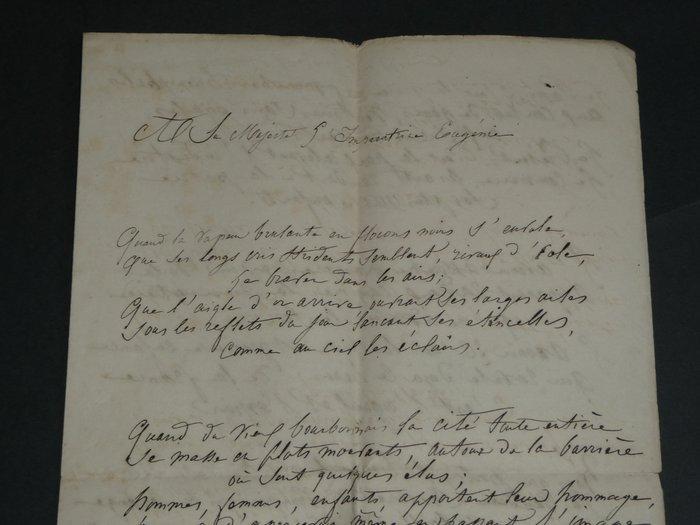 A Sa Majesté L'Impératrice Eugénie
Quand la vapeur brulante en flocons noirs s'envole,
Que ses longs cris stridents semblent, rivaux d'Eole,
Le braver dans les airs;
Que l'aigle d'or arrive ouvrant ses larges ailes
Sous les reflets du jour lançant ses étincelles,
Comme au ciel les éclairs.
Quand du vieux bourbonnais la cité toute entière
Se masse en flots mouvants, autour de la barrière
où sont quelques élus;
hommes, femmes, enfants apportent leur hommage,
même en